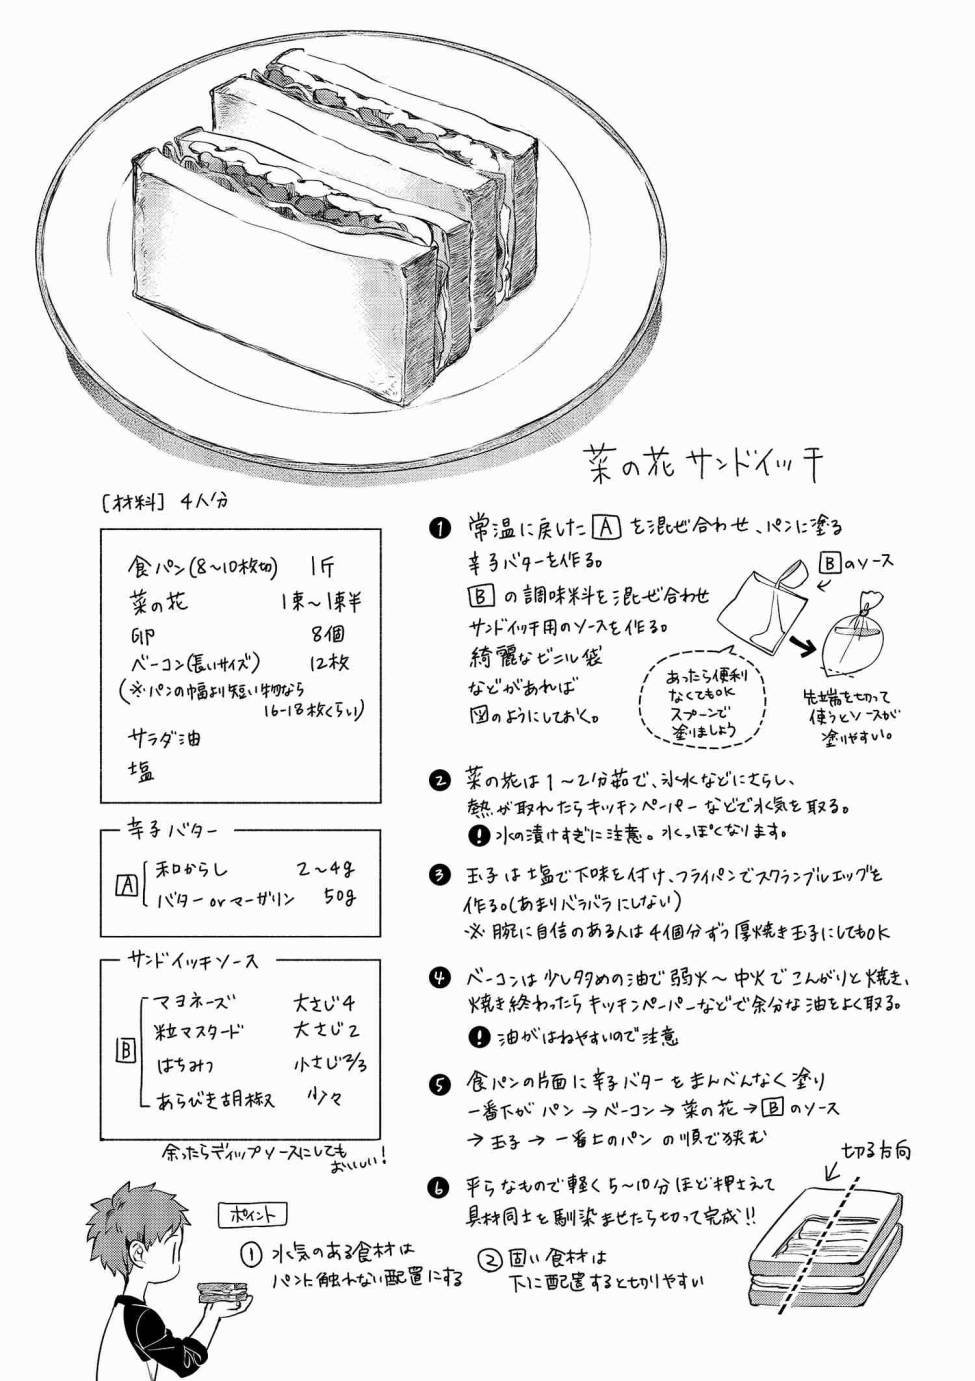 菜の花サンドイッチ
[材料] 4人分
食パン(8〜10枚切) 1斤
菜の花 1束〜1束半
卵 8個
ベーコン(長いサイズ) 12枚
(※パンの幅より短い物なら
16-18枚くらい)
サラダ油
塩
辛子バター
A
和からし 2〜4g
バターorマーガリン 50g
サンドイッチソース
B
マヨネーズ 大さじ4
粒マスタード 大さじ2
はちみつ 小さじ2/3
あらびき胡椒 少々
余ったらディップソースにしても
おいしい!
❶ 常温に戻した A を混ぜ合わせ、パンに塗る
辛子バターを作る。
B の調味料を混ぜ合わせ
サンドイッチ用のソースを作る。
綺麗なビニル袋
などがあれば
図のようにしておく。
Bのソース
あったら便利
なくてもOK
スプーンで
塗りましょう
先端を切って
使うとソースが
塗りやすい。
❷ 菜の花は1〜2分茹で、氷水などにさらし、
熱が取れたらキッチンペーパーなどで水気を取る。
! 水の漬けすぎに注意。水っぽくなります。
❸ 玉子は塩で下味を付け、フライパンでスクランブルエッグを
作る。(あまりバラバラにしない)
※腕に自信のある人は4個分ずつ厚焼き玉子にしてもOK
❹ ベーコンは少し多めの油で弱火〜中火でこんがりと焼き、
焼き終わったらキッチンペーパーなどで余分な油をよく取る。
! 油がはねやすいので注意
❺ 食パンの片面に辛子バターをまんべんなく塗り
一番下がパン→ベーコン→菜の花→Bのソース
→玉子→一番上のパンの順で挟む
❻ 平らなもので軽く5〜10分ほど押さえて
具材同士を馴染ませたら切って完成!!
切る方向
ポイント
① 水気のある食材は
パンに触れない配置にする
② 固い食材は
下に配置すると切りやすい